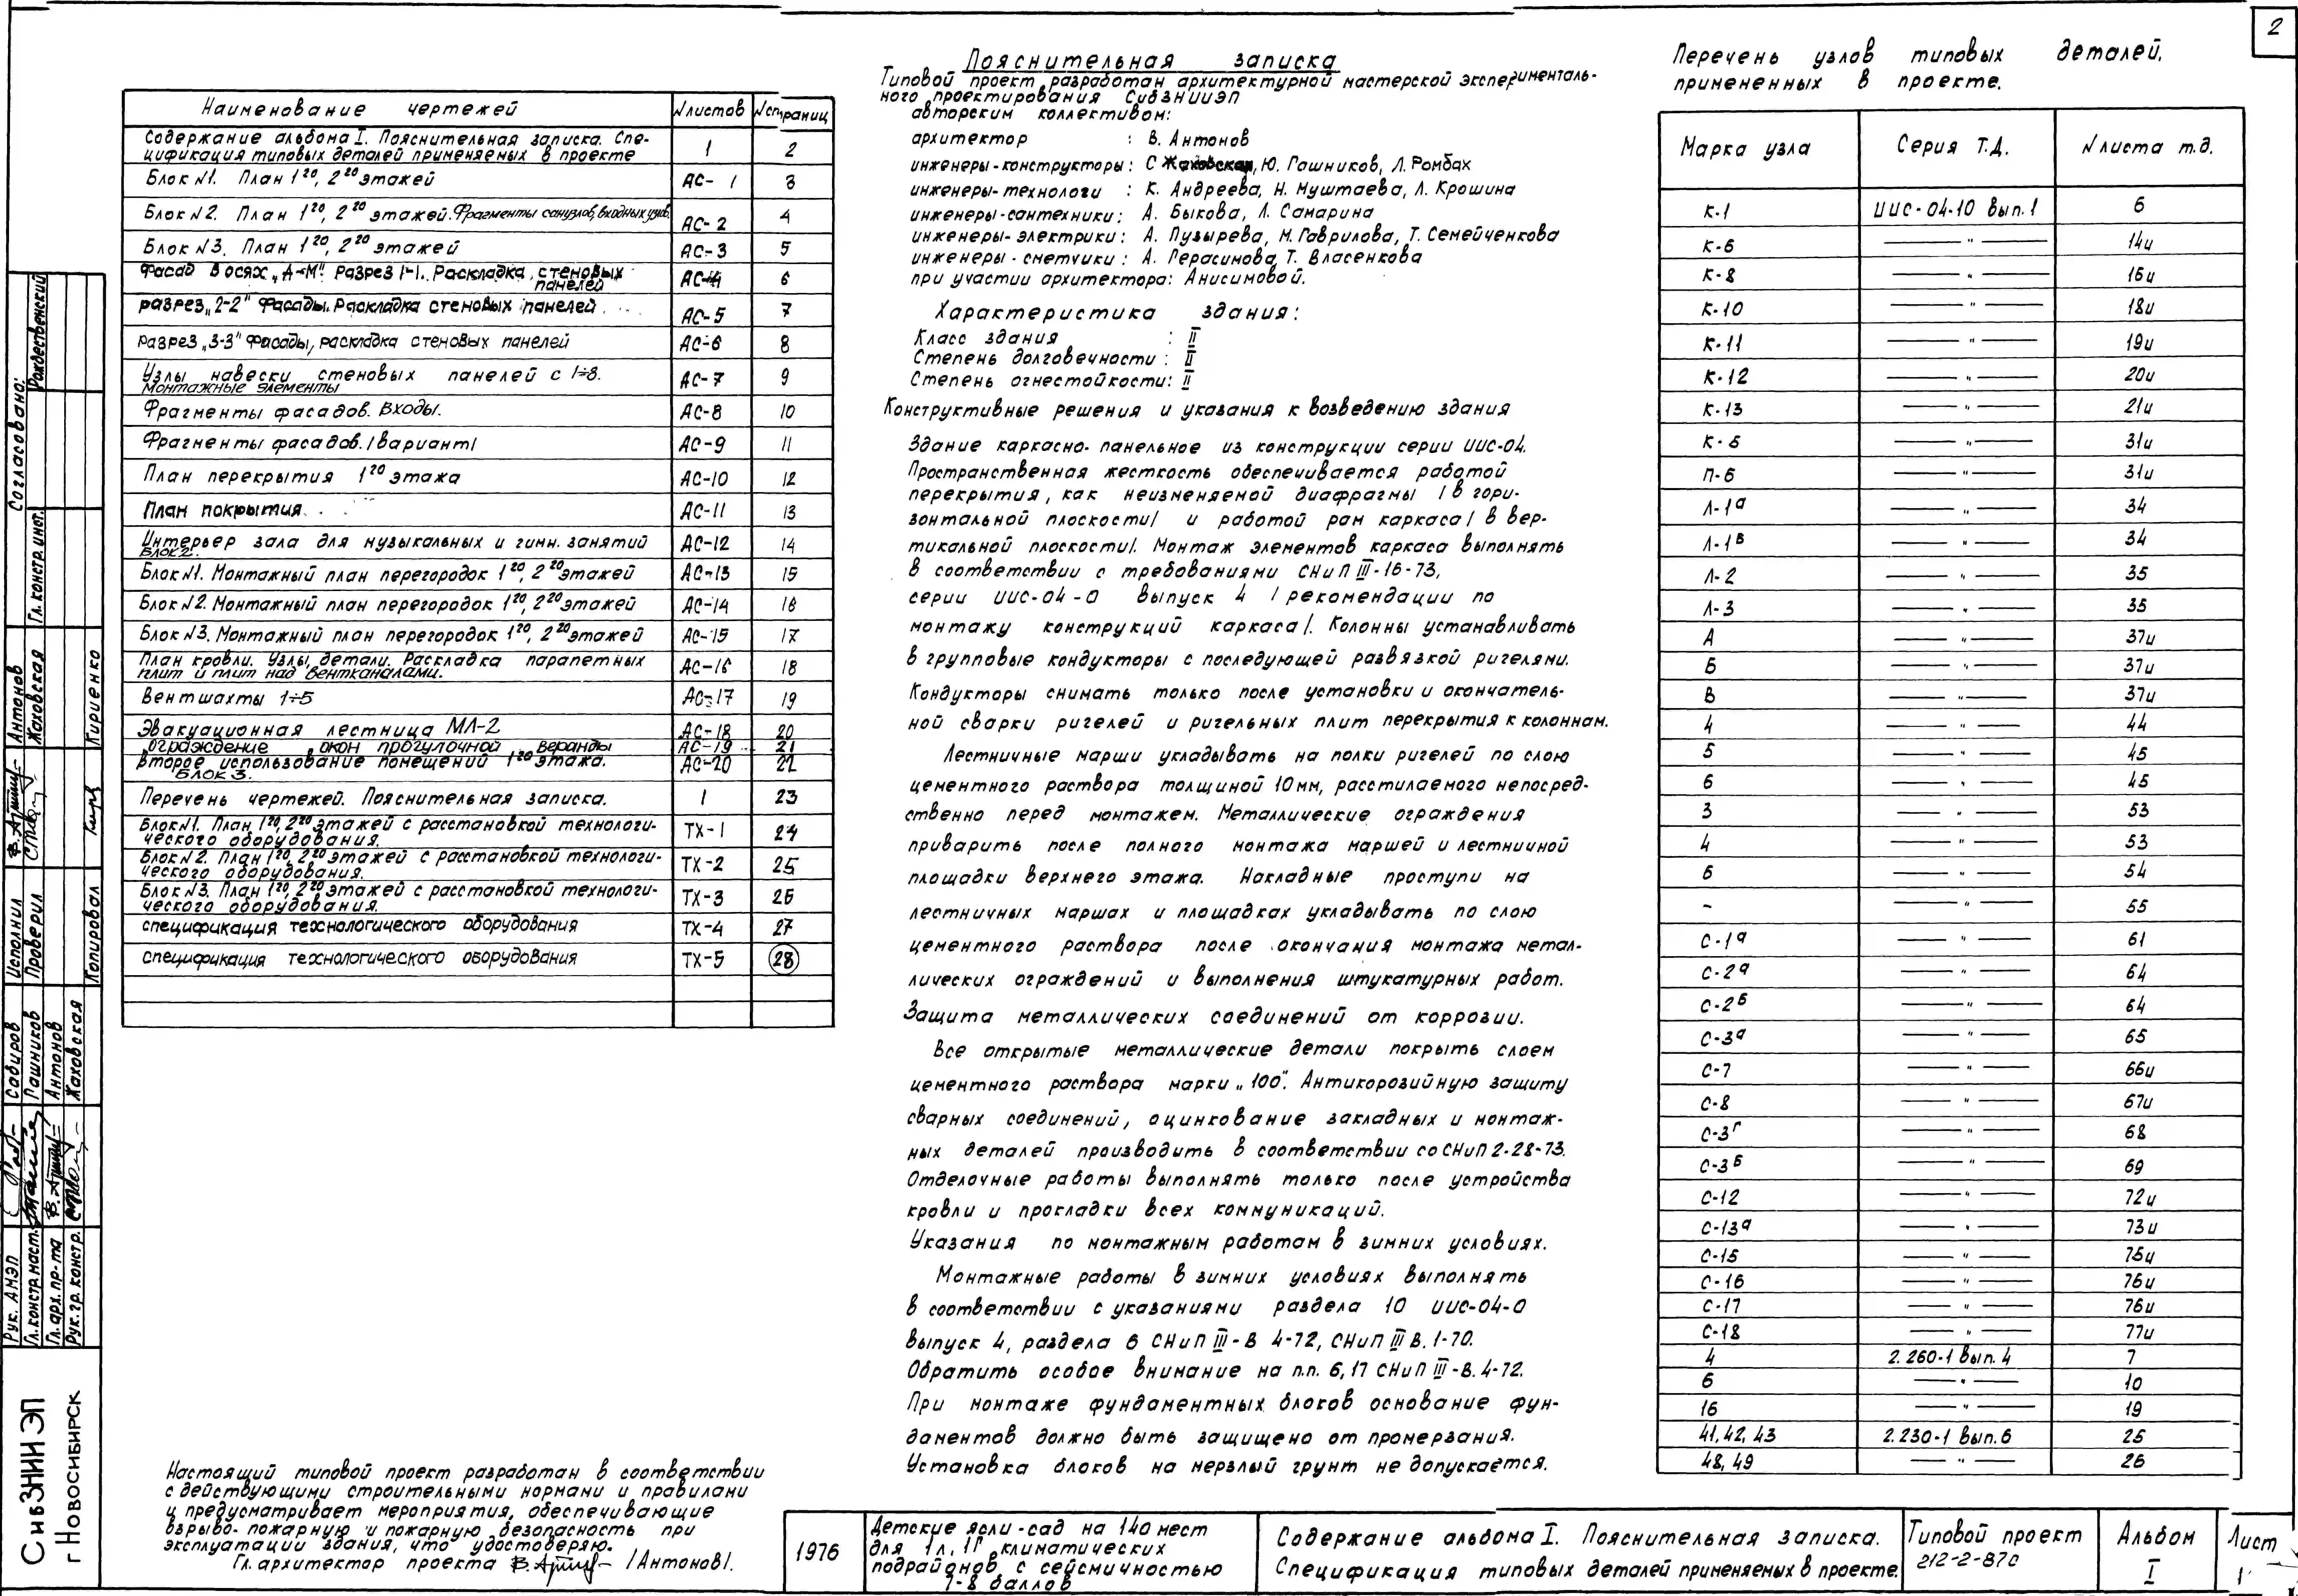 2
Наименование чертежей | №листов | №страниц
Содержание альбома I. Пояснительная записка. Спе-
цификация типовых деталей применяемых в проекте | 1 | 2
Блок №1. План 1го, 2го этажей | АС-1 | 3
Блок №2. План 1го, 2го этажей. Фрагменты санузлов, входных узлов. | АС-2 | 4
Блок №3. План 1го, 2го этажей | АС-3 | 5
Фасад в осях „А-М". Разрез 1-1. Раскладка стеновых
панелей | АС-4 | 6
разрез „2-2" Фасады. Раскладка стеновых панелей | АС-5 | 7
разрез „3-3" Фасады, раскладка стеновых панелей | АС-6 | 8
Узлы навески стеновых панелей с 1÷8.
Монтажные элементы | АС-7 | 9
Фрагменты фасадов. Входы. | АС-8 | 10
Фрагменты фасадов. /вариант/ | АС-9 | 11
План перекрытия 1го этажа | АС-10 | 12
План покрытия | АС-11 | 13
Интерьер зала для музыкальных и гимн. занятий
Блок 2. | АС-12 | 14
Блок №1. Монтажный план перегородок 1го, 2го этажей | АС-13 | 15
Блок №2. Монтажный план перегородок 1го, 2го этажей | АС-14 | 16
Блок №3. Монтажный план перегородок 1го, 2го этажей | АС-15 | 17
План кровли. Узлы, детали. Раскладка парапетных
плит и плит над вентканалами. | АС-16 | 18
Вентшахты 1÷5 | АС-17 | 19
Эвакуационная лестница МЛ-2 | АС-18 | 20
ограждение окон прогулочной веранды | АС-19 | 21
Второе использование помещений 1го этажа.
Блок 3. | АС-20 | 22
Перечень чертежей. Пояснительная записка. | 1 | 23
Блок №1. План 1го, 2го этажей с расстановкой технологи-
ческого оборудования. | ТХ-1 | 24
Блок №2. План 1го, 2го этажей с расстановкой технологи-
ческого оборудования. | ТХ-2 | 25
Блок №3. План 1го, 2го этажей с расстановкой технологи-
ческого оборудования. | ТХ-3 | 26
спецификация технологического оборудования | ТХ-4 | 27
спецификация технологического оборудования | ТХ-5 | 28
Настоящий типовой проект разработан в соответствии
с действующими строительными нормами и правилами
и предусматривает мероприятия, обеспечивающие
взрыво-пожарную и пожарную безопасность при
эксплуатации здания, что удостоверяю.
Гл. архитектор проекта /Антонов/.
Пояснительная записка
Типовой проект разработан архитектурной мастерской эксперименталь-
ного проектирования СибЗНИИЭП
авторским коллективом:
архитектор : В. Антонов
инженеры-конструкторы: С Жаховская, Ю. Гашников, Л. Ромбах
инженеры-технологи : К. Андреева, Н. Муштаева, Л. Крошина
инженеры-сантехники: А. Быкова, Л. Самарина
инженеры-электрики: А. Пузырева, М. Гаврилова, Т. Семейченкова
инженеры-сметчики: А. Герасимова, Т. Власенкова
при участии архитектора: Анисимовой.
Характеристика здания:
Класс здания : II
Степень долговечности: II
Степень огнестойкости: II
Конструктивные решения и указания к возведению здания
Здание каркасно-панельное из конструкции серии ИИС-04.
Пространственная жесткость обеспечивается работой
перекрытия, как неизменяемой диафрагмы /в гори-
зонтальной плоскости/ и работой рам каркаса /в вер-
тикальной плоскости/. Монтаж элементов каркаса выполнять
в соответствии с требованиями СНиП III-16-73,
серии ИИС-04-0 выпуск 4 /рекомендации по
монтажу конструкций каркаса/. Колонны устанавливать
в групповые кондукторы с последующей развязкой ригелями.
Кондукторы снимать только после установки и окончатель-
ной сварки ригелей и ригельных плит перекрытия к колоннам.
Лестничные марши укладывать на полки ригелей по слою
цементного раствора толщиной 10мм, расстилаемого непосред-
ственно перед монтажем. Металлические ограждения
приварить после полного монтажа маршей и лестничной
площадки верхнего этажа. Накладные проступи на
лестничных маршах и площадках укладывать по слою
цементного раствора после окончания монтажа метал-
лических ограждений и выполнения штукатурных работ.
Защита металлических соединений от коррозии.
Все открытые металлические детали покрыть слоем
цементного раствора марки „100". Антикорозийную защиту
сварных соединений, оцинкование закладных и монтаж-
ных деталей производить в соответствии со СНиП 2-28-73.
Отделочные работы выполнять только после устройства
кровли и прокладки всех коммуникаций.
Указания по монтажным работам в зимних условиях.
Монтажные работы в зимних условиях выполнять
в соответствии с указаниями раздела 10 ИИС-04-0
выпуск 4, раздела 6 СНиП III-В 4-72, СНиП III В.1-70.
Обратить особое внимание на п.п. 6,17 СНиП III-В.4-72.
При монтаже фундаментных блоков основание фун-
даментов должно быть защищено от промерзания.
Установка блоков на мерзлый грунт не допускается.
Перечень узлов типовых деталей,
примененных в проекте.
Марка узла | Серия Т.Д. | №листа т.д.
К-1 | ИИС-04-10 Вып.1 | 6
К-6 | —"— | 14и
К-8 | —"— | 16и
К-10 | —"— | 18и
К-11 | —"— | 19и
К-12 | —"— | 20и
К-13 | —"— | 21и
К-5 | —"— | 31и
П-6 | —"— | 31и
Л-1а | —"— | 34
Л-1в | —"— | 34
Л-2 | —"— | 35
Л-3 | —"— | 35
А | —"— | 37и
Б | —"— | 37и
В | —"— | 37и
4 | —"— | 44
5 | —"— | 45
6 | —"— | 45
3 | —"— | 53
4 | —"— | 53
6 | —"— | 54
- | —"— | 55
С-1а | —"— | 61
С-2а | —"— | 64
С-2б | —"— | 64
С-3а | —"— | 65
С-7 | —"— | 66и
С-8 | —"— | 67и
С-3г | —"— | 68
С-3б | —"— | 69
С-12 | —"— | 72и
С-13а | —"— | 73и
С-15 | —"— | 75и
С-16 | —"— | 76и
С-17 | —"— | 76и
С-18 | —"— | 77и
4 | 2.260-1 Вып.4 | 7
6 | —"— | 10
16 | —"— | 19
41, 42, 43 | 2.230-1 Вып.6 | 25
48, 49 | —"— | 26
Согласовано:
Рождественский
Гл. констр. инот.
Исполнил Антонов
Проверил Жаховская
Копировал Кириенко
Рук. АМЭП Сабиров
Гл.констр.маст. Пашников
Гл.арх.пр-та Антонов
Рук.гр.констр. Жаховская
СибЗНИИЭП
г Новосибирск
1976
Детские ясли-сад на 140 мест
для 1л, 1Г климатических
подрайонов с сейсмичностью
7-8 баллов
Содержание альбома I. Пояснительная записка.
Спецификация типовых деталей применяемых в проекте.
Типовой проект
212-2-87с
Альбом
I
Лист
1